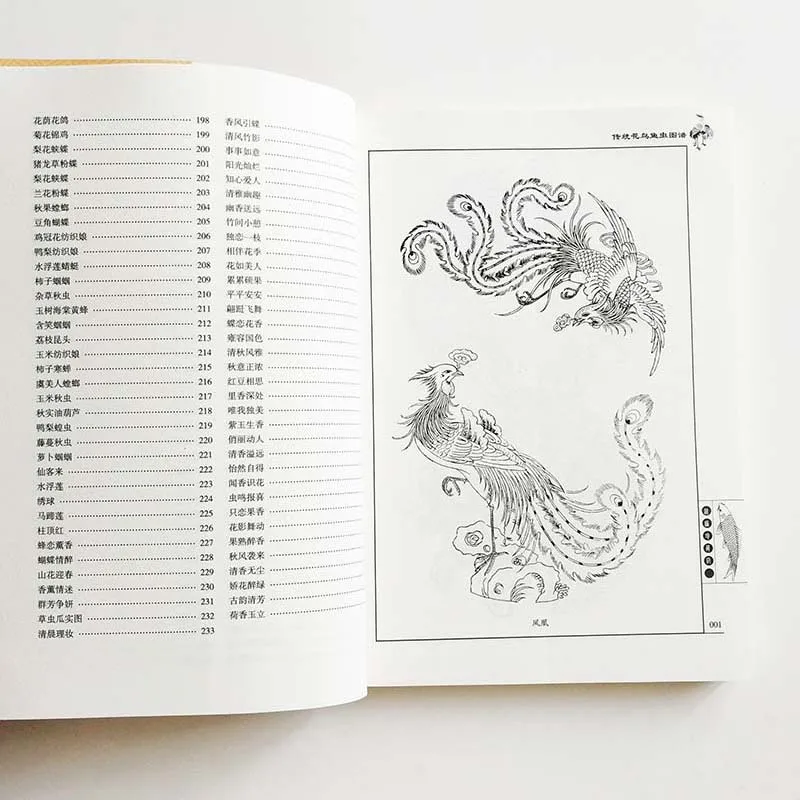 花荫花鸽 198
菊花锦鸡 199
梨花蛱蝶 200
猪龙草粉蝶 201
梨花蛱蝶 202
兰花粉蝶 203
秋果螳螂 204
豆角蝴蝶 205
鸡冠花纺织娘 206
鸭梨纺织娘 207
水浮莲蜻蜓 208
柿子蝈蝈 209
杂草秋虫 210
玉树海棠黄蜂 211
含笑蝈蝈 212
荔枝昆头 213
玉米纺织娘 214
柿子寒蝉 215
虞美人螳螂 216
玉米秋虫 217
秋实油葫芦 218
鸭梨蝗虫 219
藤蔓秋虫 220
萝卜蝈蝈 221
仙客来 222
水浮莲 223
绣球 224
马蹄莲 225
柱顶红 226
蜂恋薰香 227
蝴蝶情醉 228
山花迎春 229
香薰情迷 230
群芳争妍 231
草虫瓜实图 232
清晨理妆 233
香风引蝶
清风竹影
事事如意
阳光灿烂
知心爱人
清雅幽趣
幽香送远
竹间小憩
独恋一枝
相伴花季
花如美人
累累硕果
平平安安
翩跹飞舞
蝶恋花香
雍容国色
清秋风雅
秋意正浓
红豆相思
里香深处
唯我独美
紫玉生香
俏丽动人
清香溢远
怡然自得
闻香识花
虫鸣报喜
只恋果香
花影舞动
果熟醉香
秋风袭来
清香无尘
娇花醉绿
古韵清芳
荷香玉立
传统花鸟鱼虫图谱
凤凰
001